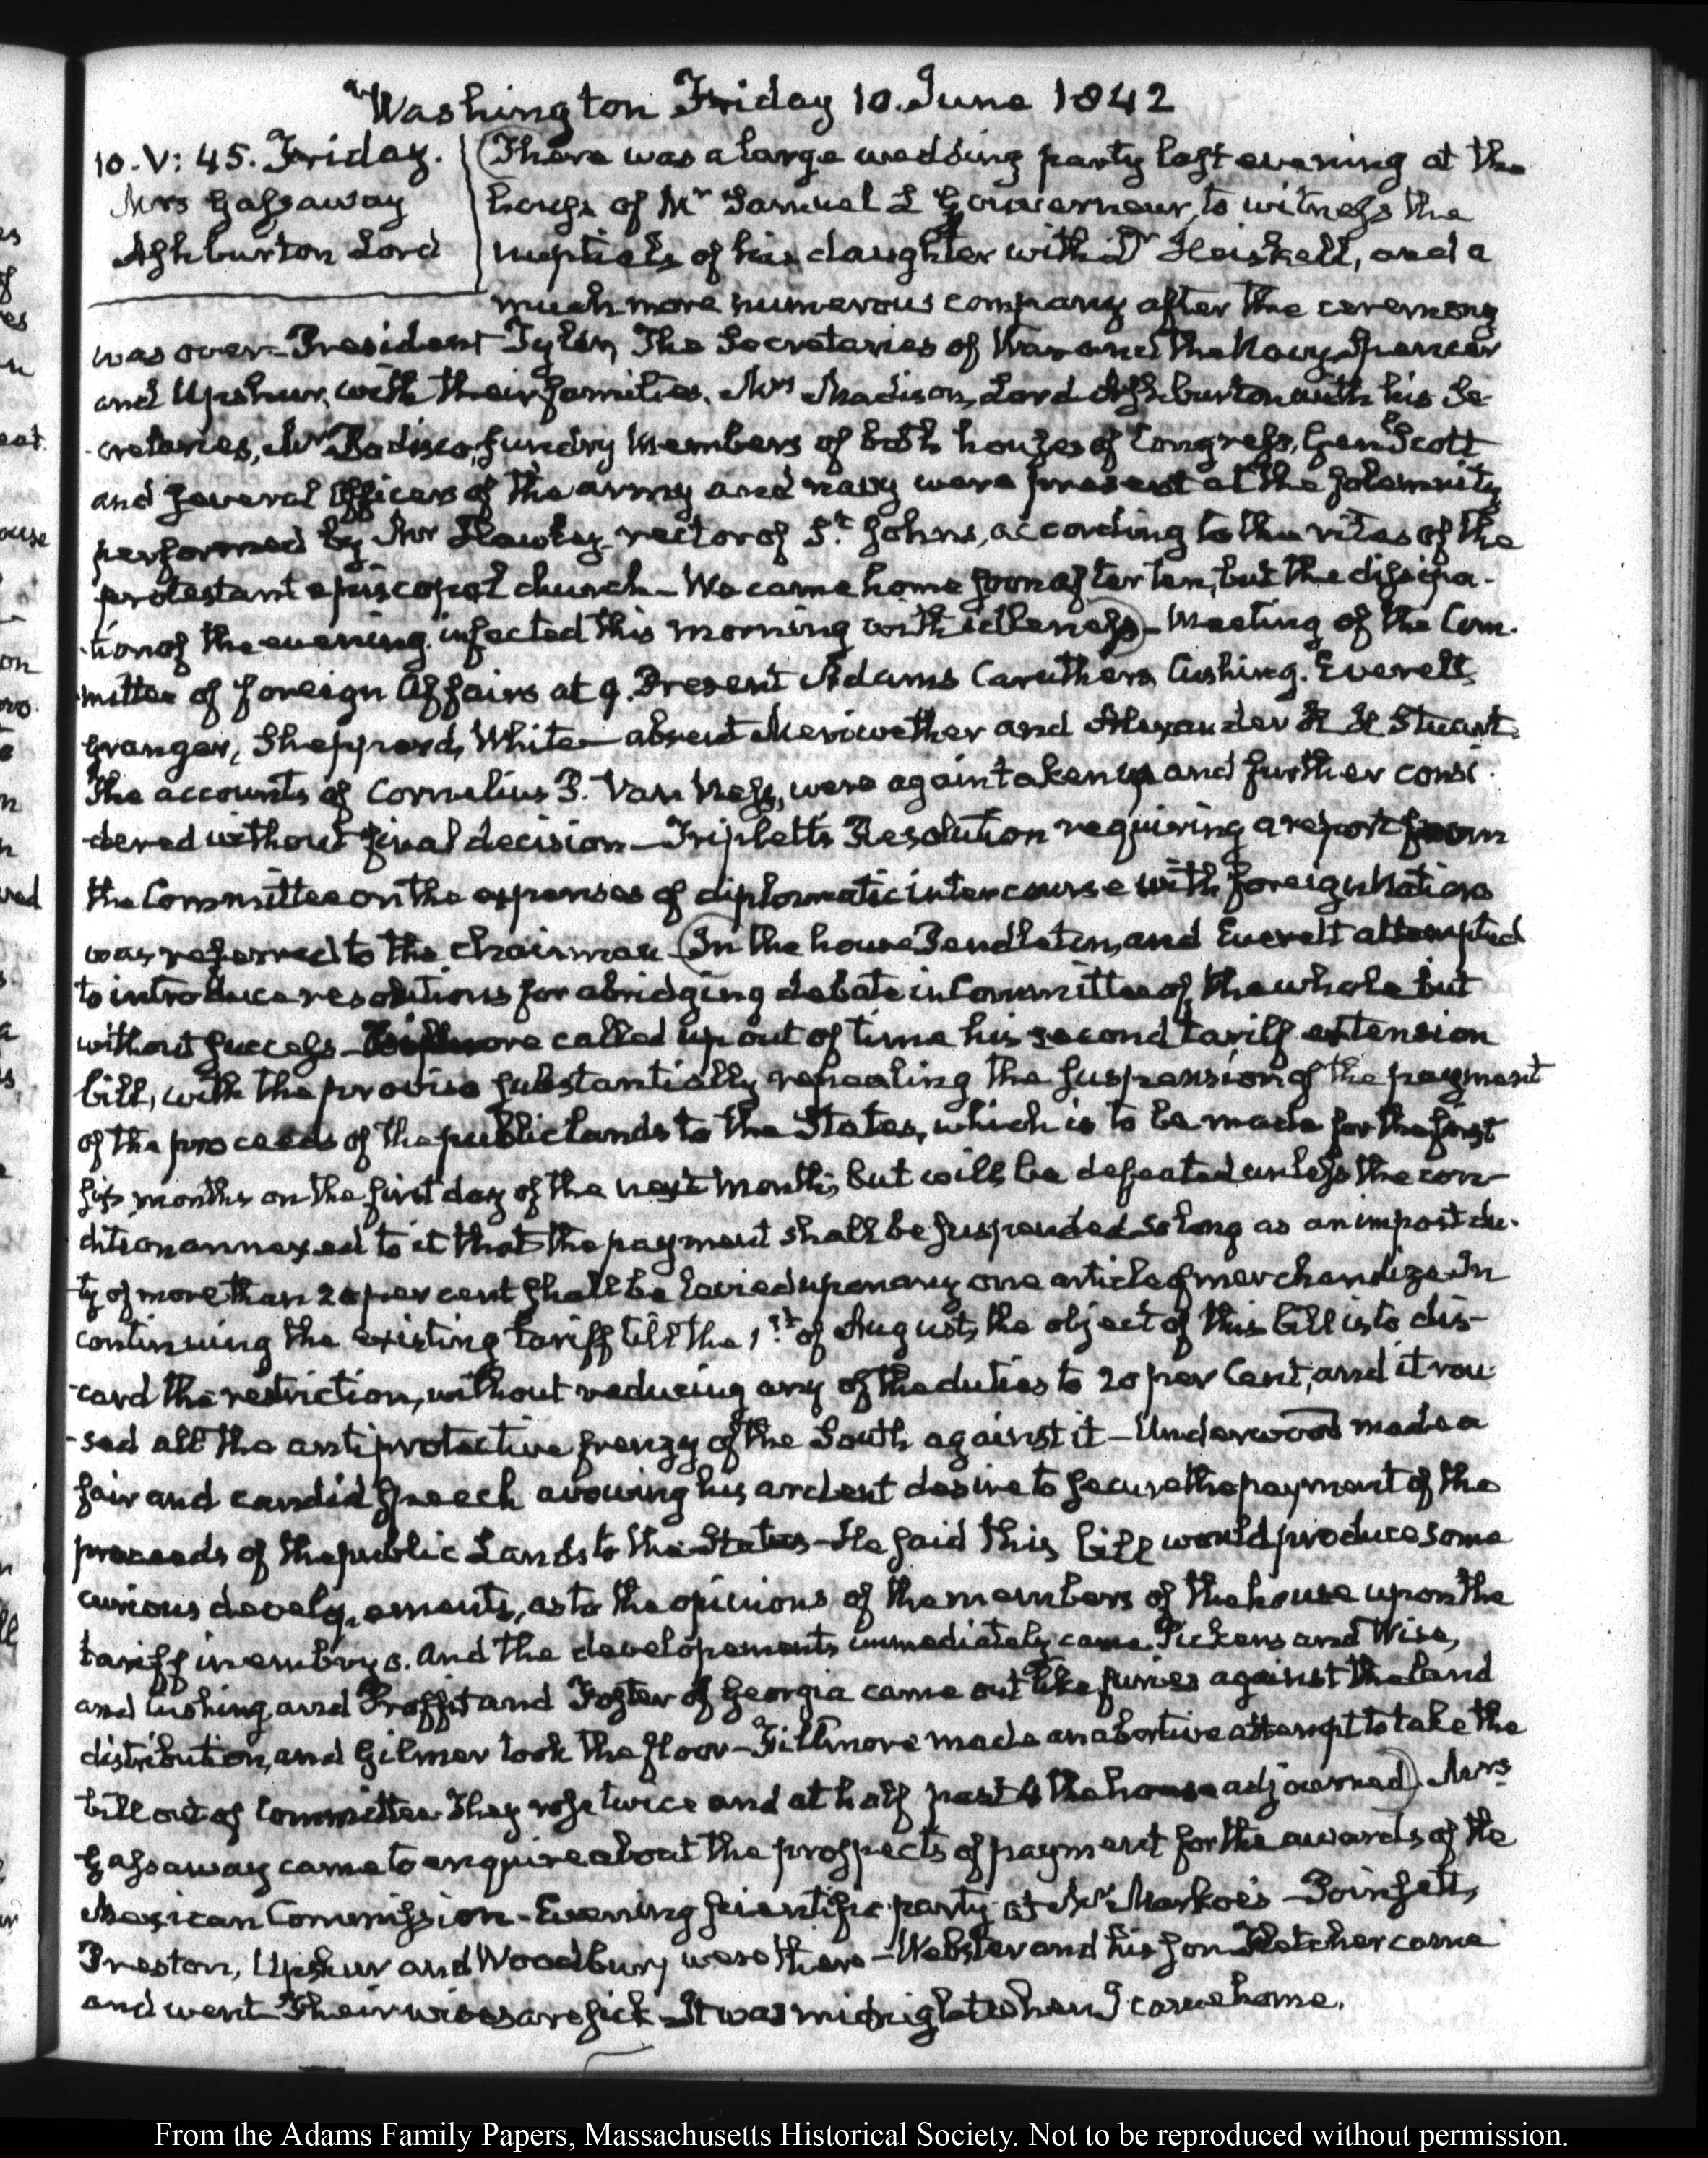 Washington Friday 10. June 1842
10. V: 45. Friday.
Mrs Gassaway
Ashburton Lord
There was a large wedding party last evening at the
house of Mr Samuel L Gouverneur, to witness the
nuptials of his daughter with Dr Heiskell, and a
much more numerous company after the ceremony
was over— President Tyler, The Secretaries of War and the Navy Spencer
and Upshur, with their families. Mrs Madison, Lord Ashburton with his Se-
-cretaries, Mr Bodisco, sundry Members of both houses of Congress, Genl Scott
and several Officers of the army and navy were present at the solemnity
performed by Mr Hawley rector of St. Johns, according to the rites of the
protestant episcopal church— We came home soon after ten, but the dissipa-
-tion of the evening infected this morning with idleness)— Meeting of the Com-
-mittee of foreign Affairs at 9. Present Adams Caruthers, Cushing. Everett,
Granger, Shepperd, White— absent Meriwether and Alexander H H Stuart.
The accounts of Cornelius P. Van Ness, were again taken up and further consi-
dered without final decision— Triplett's Resolution requiring a report from
the Committee on the expenses of diplomatic intercourse with foreign Nations
was referred to the chairman— (In the house Pendleton, and Everett attempted
to introduce resolutions for abridging debate in Committee of the whole but
without success— Fillmore called up out of time his second tariff extension
bill, with the proviso substantially repealing the suspension of the payment
of the proceeds of the public lands to the States, which is to be made for the first
six months on the first day of the next month; but will be defeated unless the con-
dition annexed to it that the payment shall be suspended so long as an impost du-
ty of more than 20 per cent shall be levied upon any one article of merchandize In
continuing the existing tariff till the 1st of August, the object of this bill is to dis-
-card the restriction, without reducing any of the duties to 20 per Cent, and it rou-
-sed all the antiprotective frenzy of the South against it— Underwood made a
fair and candid speech avowing his ardent desire to secure the payment of the
proceeds of the public Lands to the States— He said this bill would produce some
curious developements, as to the opinions of the members of the house upon the
tariff in embryo. And the developements immediately came. Pickens and Wise,
and Cushing and Proffit and Foster of Georgia came out like furies against the land
distribution, and Gilmer took the floor— Fillmore made an abortive attempt to take the
bill out of Committee They rose twice and at half past 4 the house adjourned). Mrs
Gassaway came to enquire about the prospects of payment for the awards of the
Mexican Commission— Evening scientific party at Mr Markoe's— Poinsett,
Preston, Upshur and Woodbury were there— Webster and his son Fletcher came
and went Their wives are sick— It was midnight when I came home.
From the Adams Family Papers, Massachusetts Historical Society. Not to be reproduced without permission.